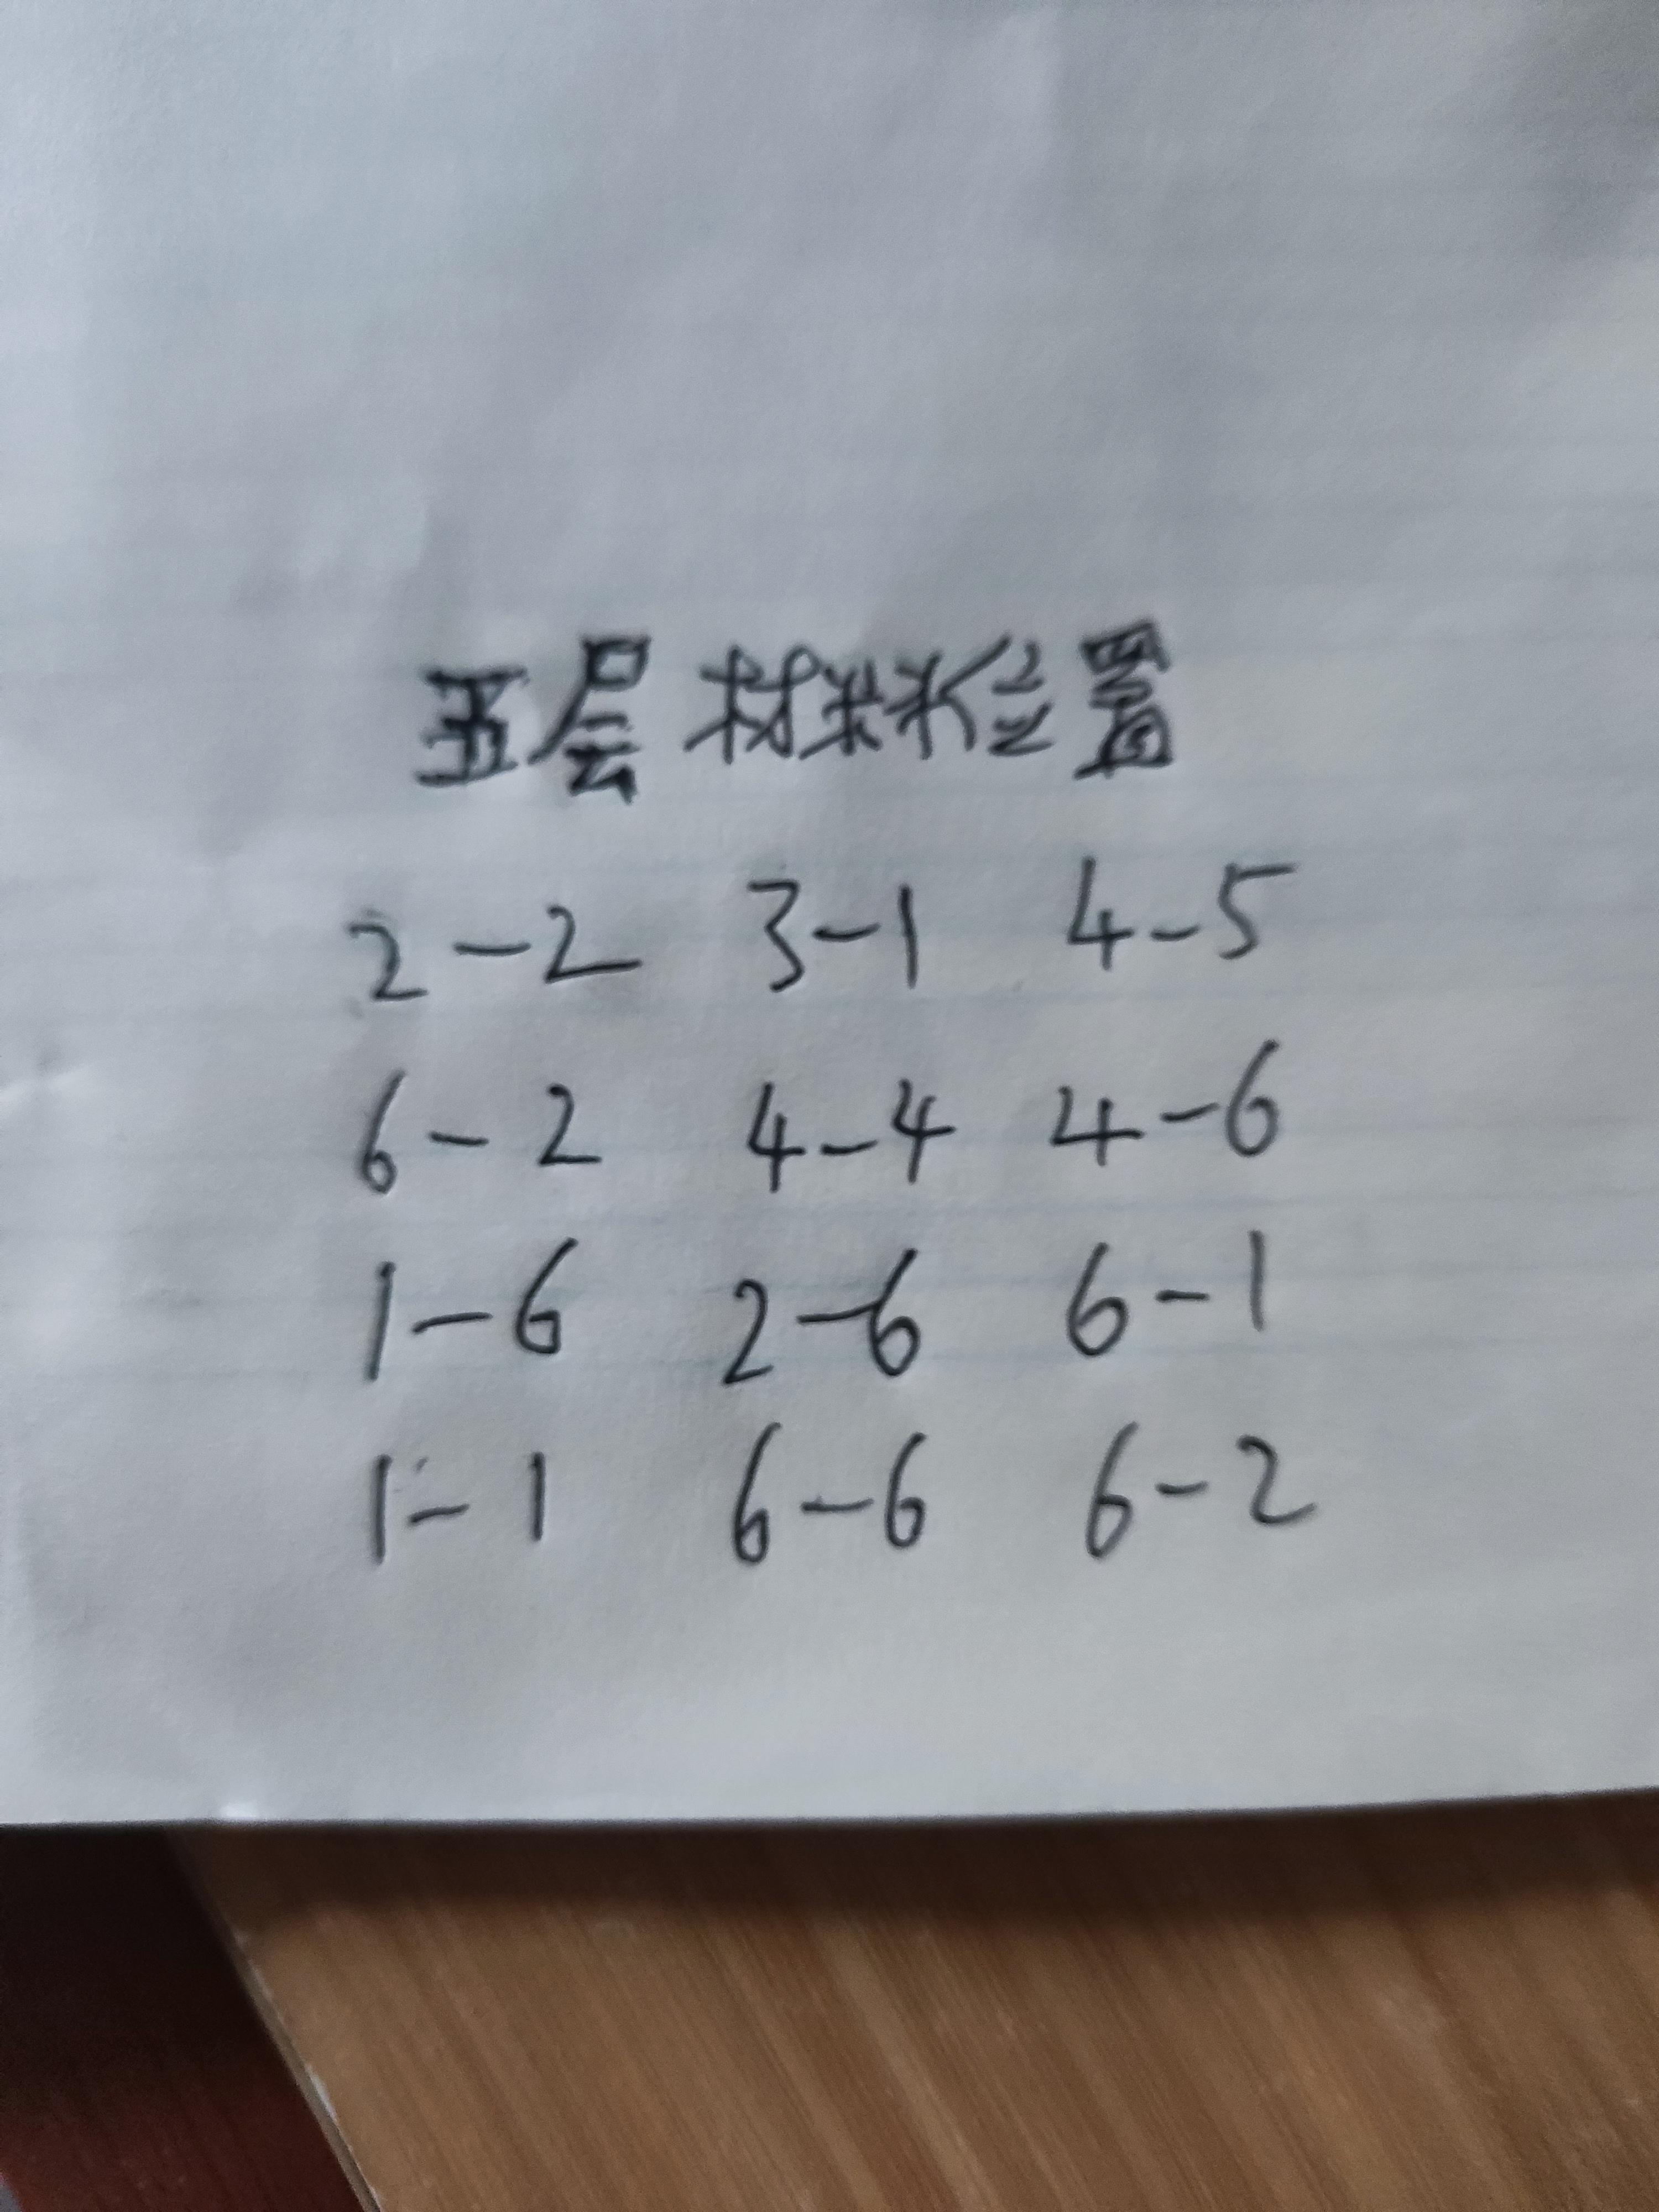 五层材料位置
2-2 3-1 4-5
6-2 4-4 4-6
1-6 2-6 6-1
1-1 6-6 6-2